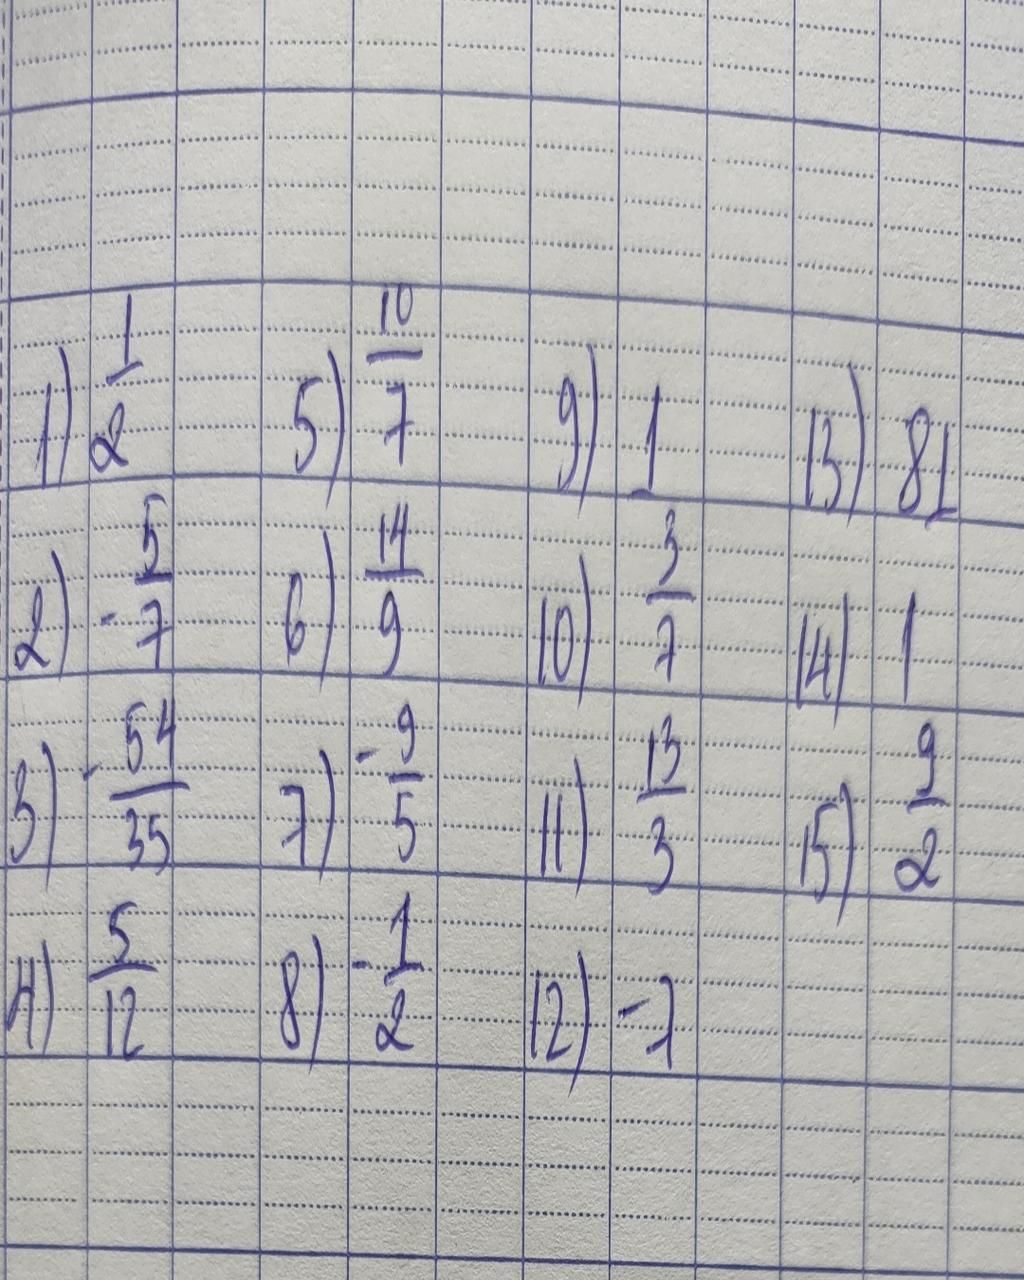 1) 1/2
2) -5/7
3) -54/35
4) 5/12
5) 10/7
6) 14/9
7) -9/5
8) -1/2
9) 1
10) 3/7
11) 13/3
12) -7
13) 81
14) 1
15) 9/2